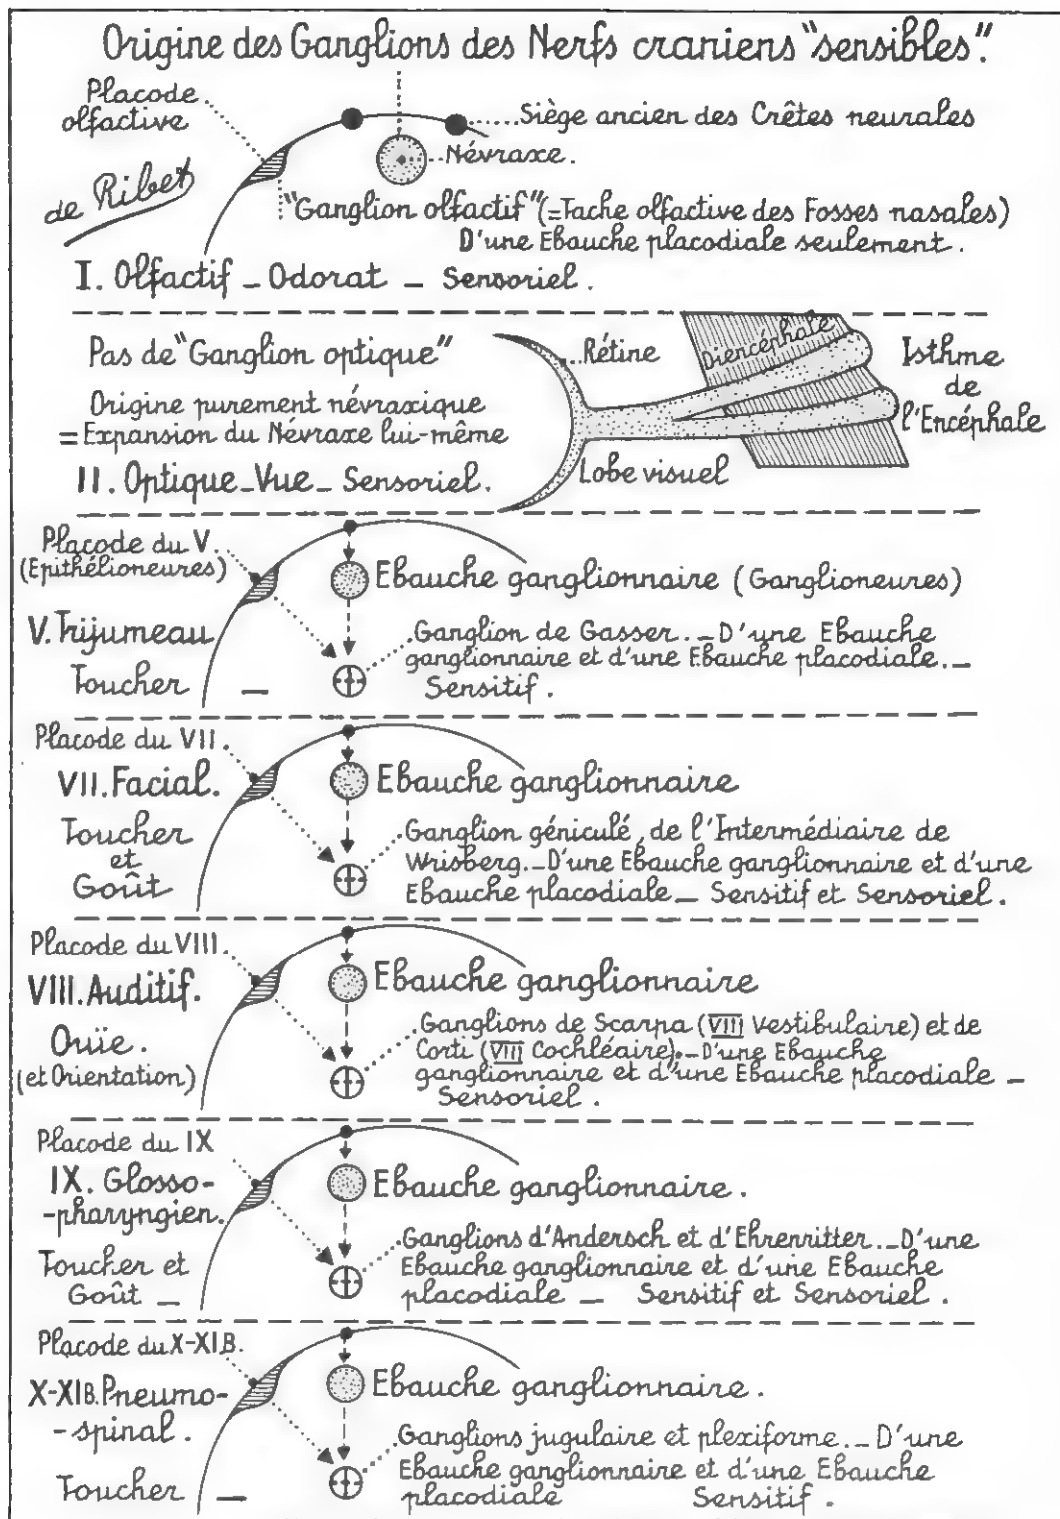 Origine des Ganglions des Nerfs craniens "sensibles".
Placode
olfactive
Siège ancien des Crêtes neurales
Névraxe.
de Ribet
"Ganglion olfactif" (=Tache olfactive des Fosses nasales)
D'une Ebauche placodiale seulement.
I. Olfactif _ Odorat _ Sensoriel.
Pas de "Ganglion optique"
Rétine
Diencéphale
Isthme
de
l'Encéphale
Origine purement névraxique
= Expansion du Névraxe lui-même
Lobe visuel
II. Optique _ Vue _ Sensoriel.
Placode du V.
(Epithélioneures)
Ebauche ganglionnaire (Ganglioneures)
V. Trijumeau
Toucher _
Ganglion de Gasser. _ D'une Ebauche
ganglionnaire et d'une Ebauche placodiale. _
Sensitif.
Placode du VII.
VII. Facial.
Ebauche ganglionnaire
Toucher
et
Goût
Ganglion géniculé, de l'Intermédiaire de
Wrisberg. _ D'une Ebauche ganglionnaire et d'une
Ebauche placodiale _ Sensitif et Sensoriel.
Placode du VIII.
VIII. Auditif.
Ebauche ganglionnaire
Ouïe.
(et Orientation)
Ganglions de Scarpa (VIII Vestibulaire) et de
Corti (VIII Cochléaire). _ D'une Ebauche
ganglionnaire et d'une Ebauche placodiale _
Sensoriel.
Placode du IX
IX. Glosso-
-pharyngien.
Ebauche ganglionnaire.
Toucher et
Goût _
Ganglions d'Andersch et d'Ehrenritter. _ D'une
Ebauche ganglionnaire et d'une Ebauche
placodiale _ Sensitif et Sensoriel.
Placode du X-XIB.
X-XIB. Pneumo-
-spinal.
Ebauche ganglionnaire.
Toucher _
Ganglions jugulaire et plexiforme. _ D'une
Ebauche ganglionnaire et d'une Ebauche
placodiale Sensitif.